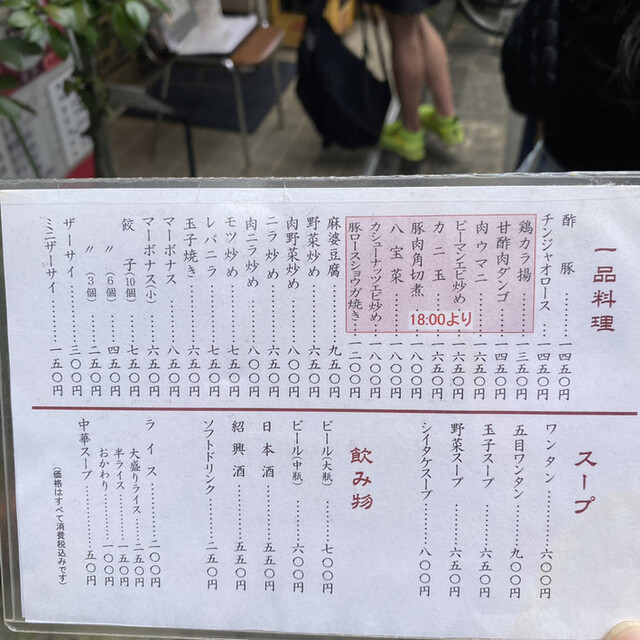 一品料理
酢豚…………一四五〇円
チンジャオロース……一四五〇円
鶏カラ揚…………一三五〇円
甘酢肉ダンゴ………一四五〇円
肉ウマニ…………一六五〇円
ピーマンエビ炒め……一六五〇円
カニ玉
豚肉角切煮
18:00より
八宝菜…………一八〇〇円
カシューナッツエビ炒め……一八〇〇円
豚ロースショウガ焼き……一二〇〇円
麻婆豆腐…………九五〇円
野菜炒め…………六五〇円
肉野菜炒め…………八〇〇円
ニラ炒め…………六五〇円
肉ニラ炒め…………八〇〇円
モツ炒め…………七五〇円
レバニラ…………七五〇円
玉子焼き…………六五〇円
マーボナス…………八五〇円
マーボナス(小)……六五〇円
餃子(10個)……七五〇円
〃(6個)……四五〇円
〃(3個)……二五〇円
ザーサイ…………三〇〇円
ミニザーサイ………一五〇円
スープ
ワンタン…………六〇〇円
五目ワンタン………九〇〇円
玉子スープ…………六五〇円
野菜スープ…………六五〇円
シイタケスープ………八〇〇円
飲み物
ビール(大瓶)………七〇〇円
ビール(中瓶)………六〇〇円
日本酒…………五五〇円
紹興酒…………五五〇円
ソフトドリンク………二五〇円
ライス…………二〇〇円
大盛りライス……二五〇円
半ライス………一五〇円
おかわり………一〇〇円
中華スープ…………五〇円
(価格はすべて消費税込みです)